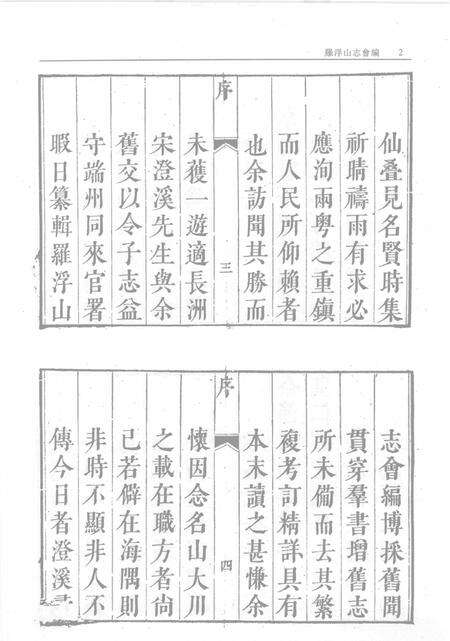 羅浮山志會編 2
仙叠見名賢時集
祈晴禱雨有求必
應洵兩粵之重鎮
而人民所仰賴者
也余訪聞其勝而
序
三
未獲一遊適長洲
宋澄溪先生與余
舊交以令子志益
守端州同來官署
暇日纂輯羅浮山
志會編博採舊聞
貫穿羣書增舊志
所未備而去其繁
複考訂精詳具有
本末讀之甚慊余
序
四
懷因念名山大川
之載在職方者尙
已若僻在海隅則
非時不顯非人不
傳今日者澄溪